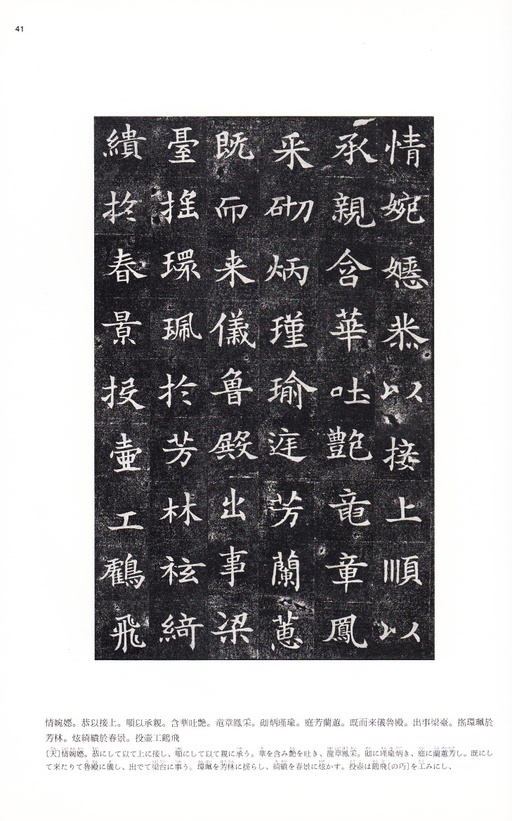 41
情婉嫕恭以接上順以
承親含華吐艶竜章鳳
采砌炳瑾瑜庭芳蘭蕙
既而来儀魯殿出事梁
臺揺環珮於芳林炫綺
繢於春景投壷工鶴飛
情婉嫕。恭以接上。順以承親。含華吐艶。竜章鳳采。砌炳瑾瑜。庭芳蘭蕙。既而来儀魯殿。出事梁臺。揺環珮於
芳林。炫綺繢於春景。投壷工鶴飛
[大]情婉嫕。恭にして以て上に接し、順にして以て親に承う。華を含み艶を吐き、竜章鳳采。砌に瑾瑜炳き、庭に蘭蕙芳し。既にし
て来たりて魯殿に儀し、出でて梁台に事う。環珮を芳林に揺らし、綺繢を春景に炫かす。投壷は鶴飛[の巧]を工みにし、